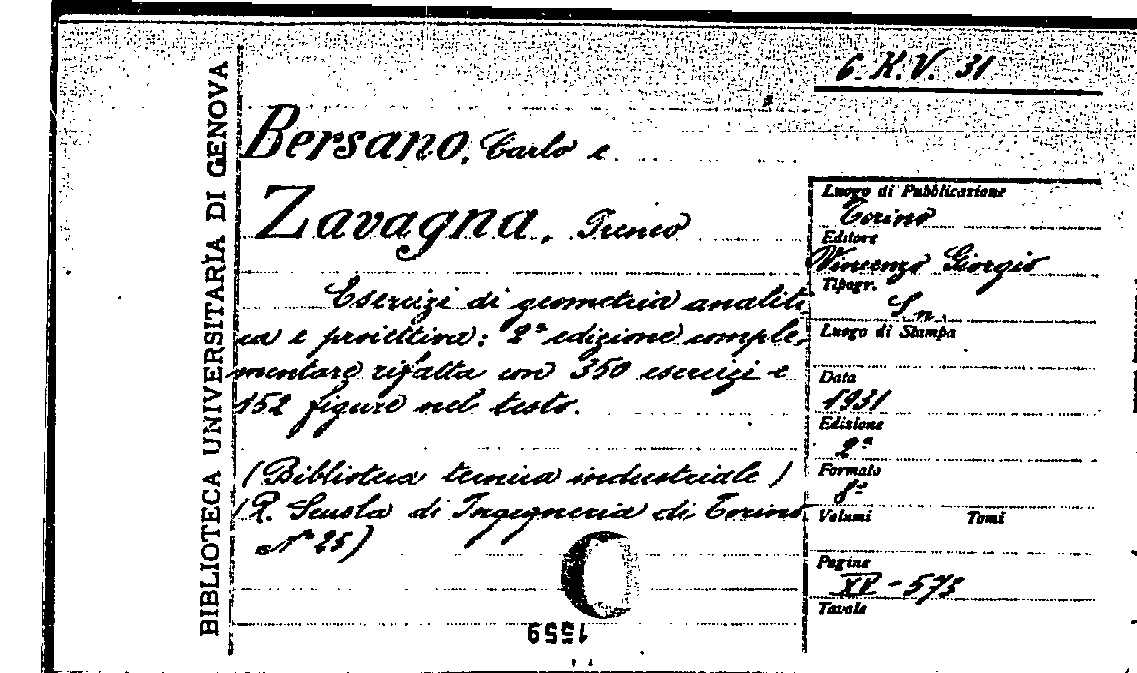 BIBLIOTECA UNIVERSITARIA DI GENOVA
6. K.V. 31
Bersano, Carlo e
Zavagna, Ireneo
Esercizi di geometria analiti-
ca e proiettiva: 2ª edizione comple-
mentare rifatta con 350 esercizi e
152 figure nel testo.
(Biblioteca tecnica industriale)
(R. Scuola di Ingegneria di Torino
N° 25)
1559
Luogo di Pubblicazione
Torino
Editore
Vincenzo Giorgio
Tipogr.
S.n.
Luogo di Stampa
Data
1931
Edizione
2ª
Formato
8°
Volumi Tomi
Pagine
XV - 573
Tavole